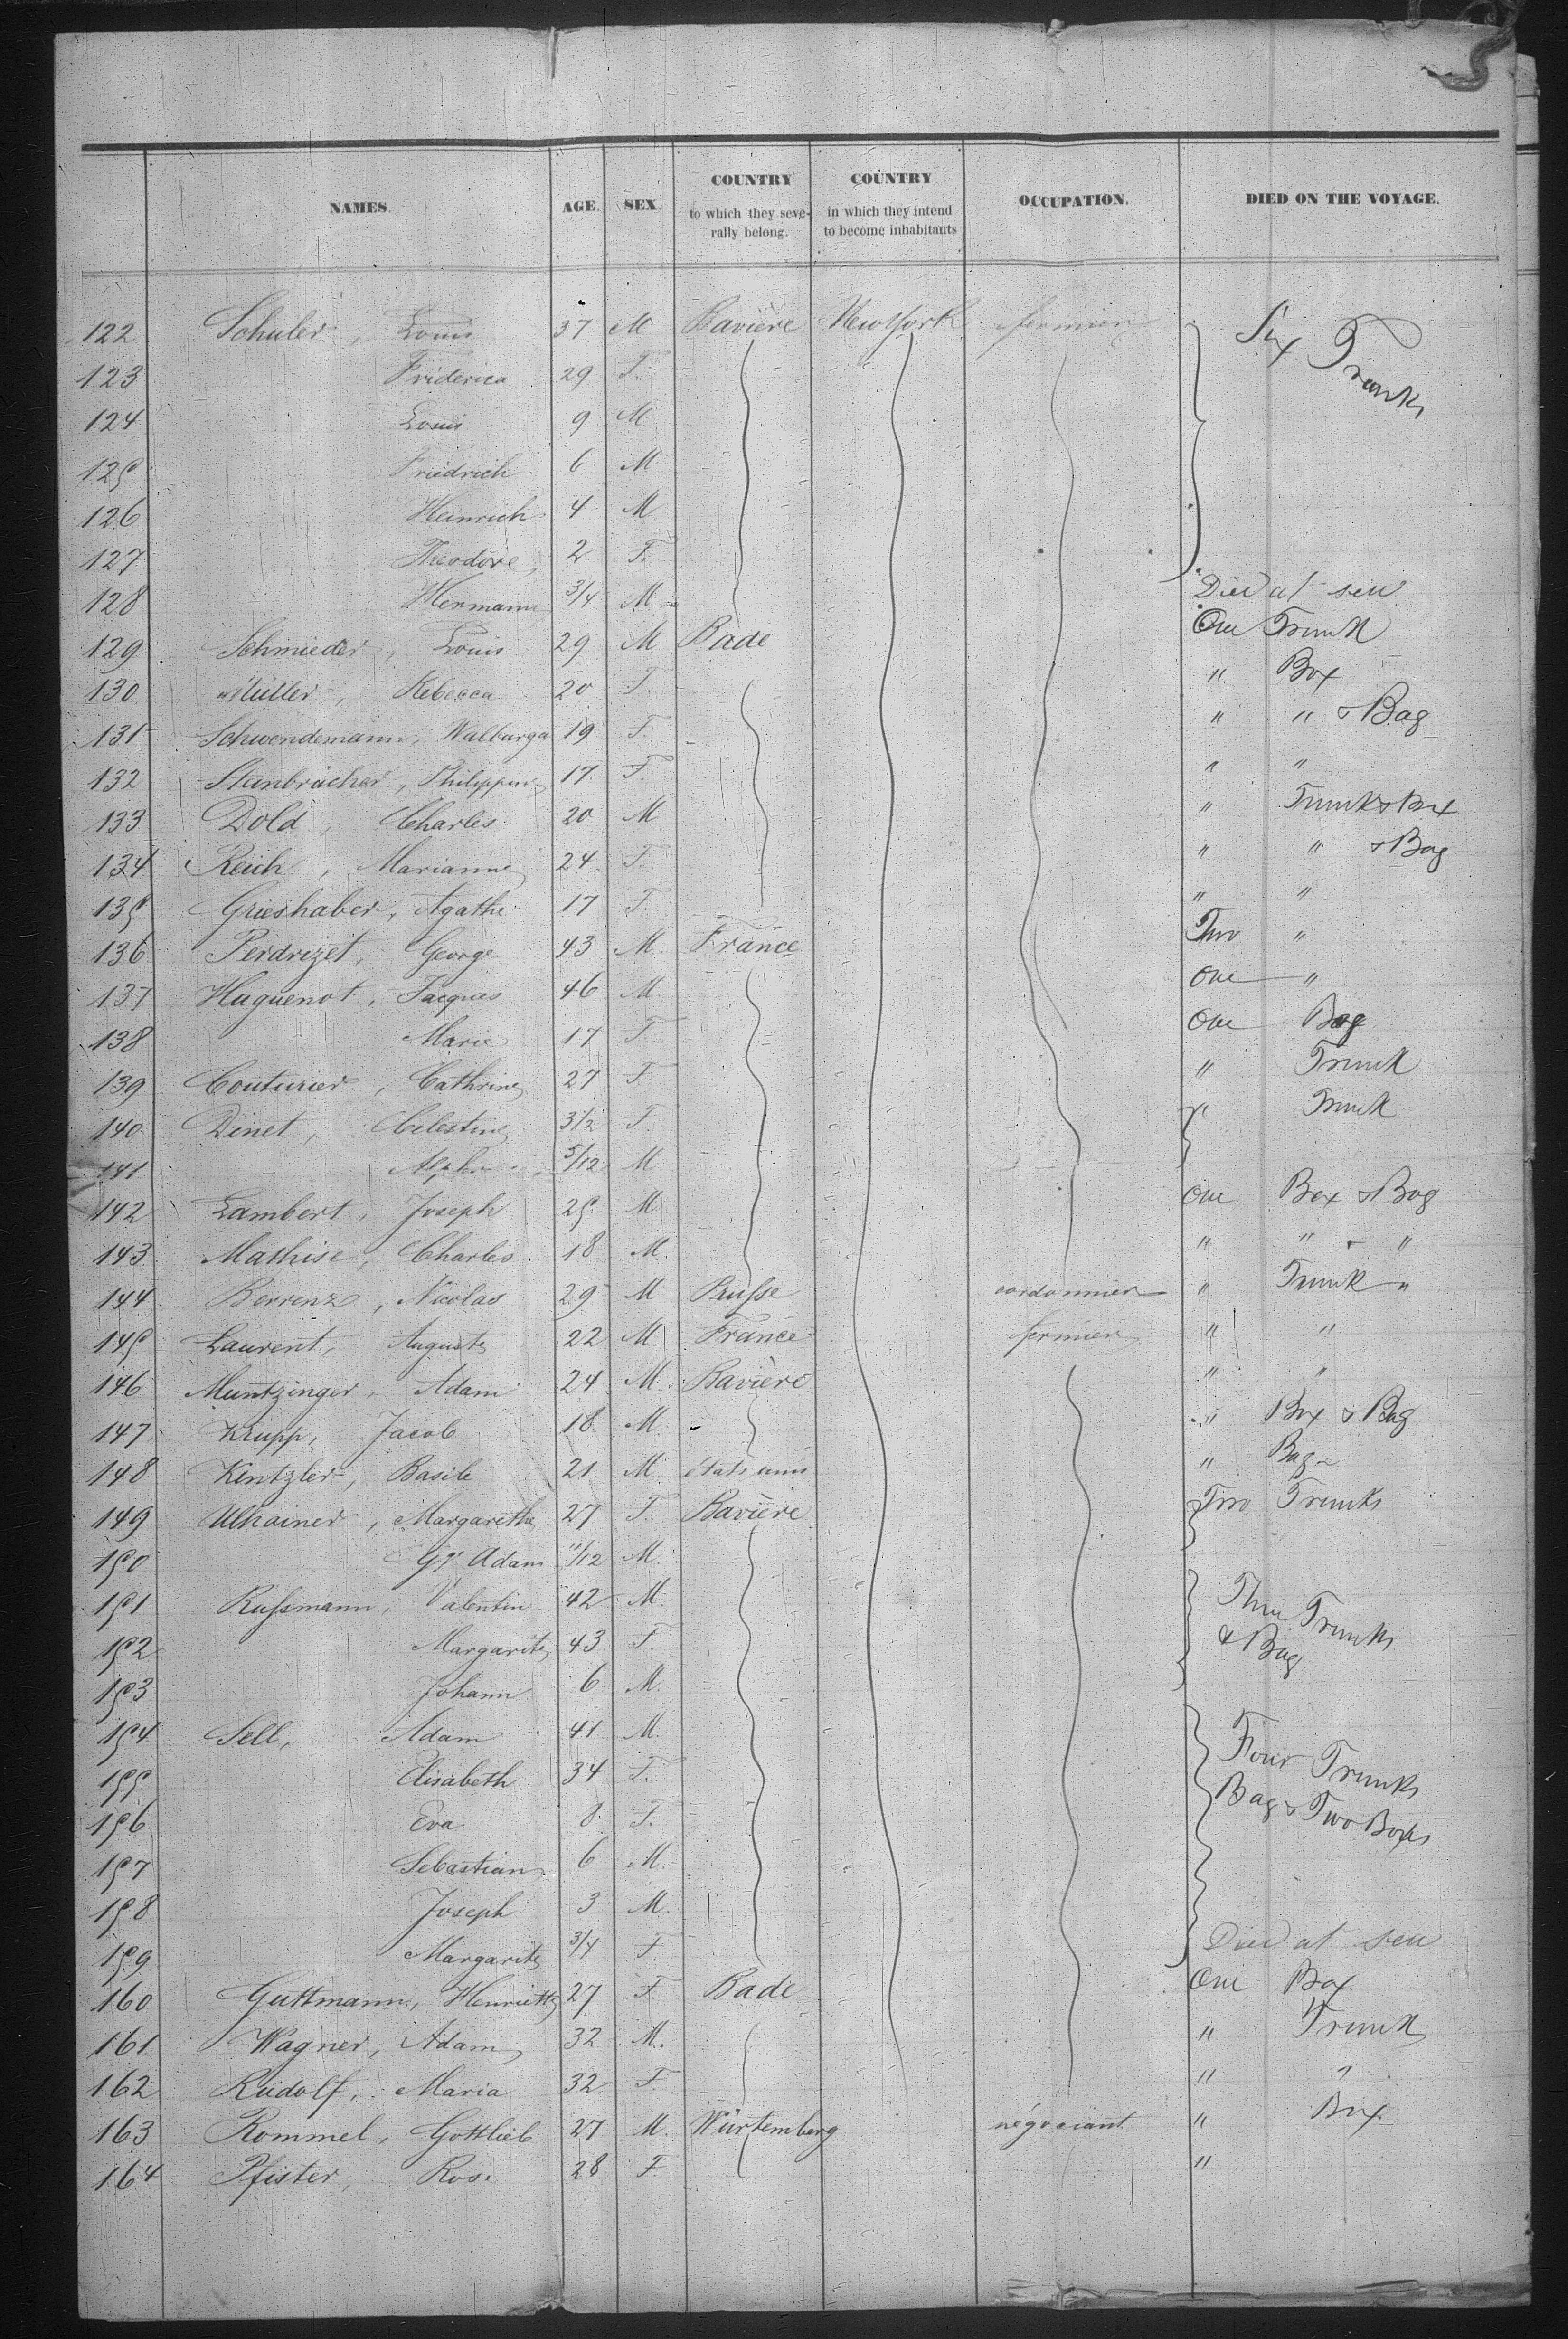 NAMES. AGE. SEX COUNTRY to which they severally belong. COUNTRY in which they intend to become inhabitants OCCUPATION. DIED ON THE VOYAGE.
122 Schuler, Louis 37 M Bavière New York fermier Six Trunks
123 Friderica 29 F.
124 Louis 9 M
125 Friedrich 6 M
126 Heinrich 4 M
127 Theodore, 2 F.
128 Hermann 3/4 M. Died at sea
129 Schmieder, Louis 29 M Bade One Trunk
130 Müller, Rebecca 20 F. " Box
131 Schwendemann, Walburga 19 F. " " & Bag
132 Steinbrücher, Philippine 17. F. " "
133 Dold, Charles 20 M " Trunk & Box
134 Reich, Marianne 24 F. " " & Bag
135 Grieshaber, Agathe 17 F. " "
136 Perdrizet, George 43 M. France Two "
137 Huguenot, Jacques 46 M. One "
138 Marie 17 F One Bag
139 Couturier, Cathrine 27 F. " Trunk
140 Dinet, Celestine 3 1/2 F. " Trunk
141 5/12 M
142 Lambert, Joseph 25 M. One Box & Bag
143 Mathise, Charles 18 M. " " & "
144 Berrenz, Nicolas 29 M Prusse cordonnier " Trunk "
145 Laurent, Auguste 22 M France fermier " "
146 Muntzinger, Adam 24 M Bavière " "
147 Krupp, Jacob 18 M. " Box & Bag
148 Kintzler, Basile 21 M états unis " Bag
149 Ulhainer, Margarethe 27 F. Bavière Two Trunks
150 Gg Adam 11/12 M.
151 Russmann, Valentin 42 M. Three Trunks
152 Margarite 43 F. & Bag
153 Johann 6 M.
154 Sell, Adam 41 M. Four Trunks
155 Elisabeth 34 F. Bag & Two Boxes
156 Eva 8 F.
157 Sebastian 6 M.
158 Joseph 3 M.
159 Margarite 3/4 F. Died at sea
160 Guttmann, Henriette 27 F Bade One Box
161 Wagner, Adam 32 M. " Trunk
162 Rudolf, Maria 32 F. " "
163 Rommel, Gottlieb 27 M. Würtemberg négociant " Box
164 Pfister, Rose 28 F. "